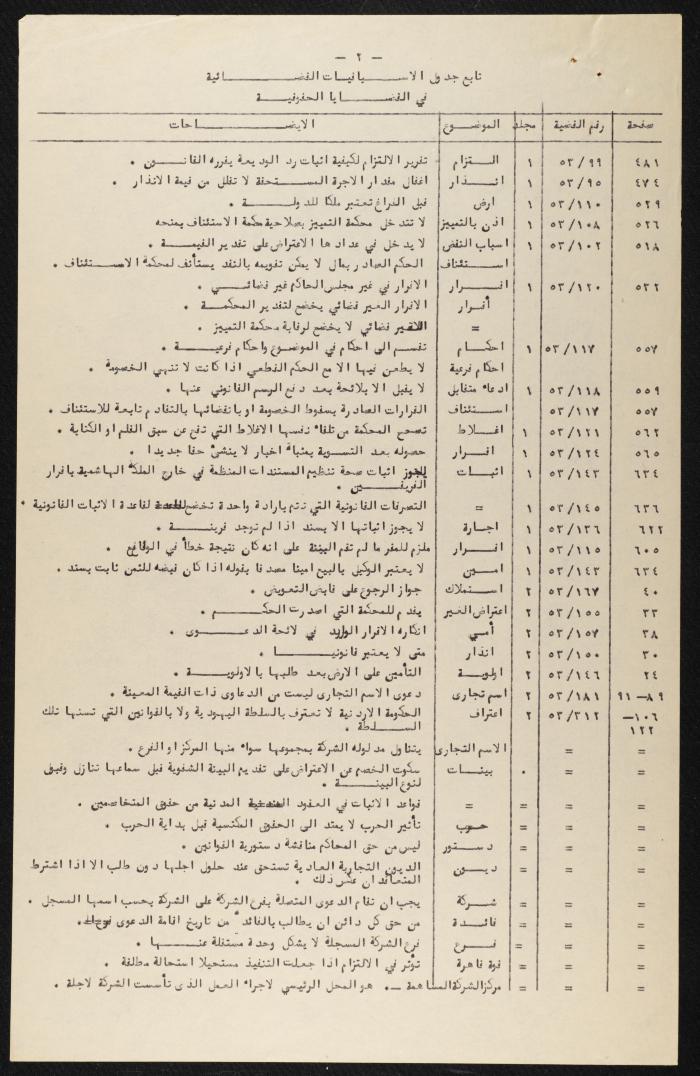 — ٢ —
تابع جدول الاسبقيات القضائية
في القضايا الحقوقية
صفحة رقم القضية مجلد الموضوع الايضاحات
٤٨١ ٥٣/٩٩ ١ التزام تقرير الالتزام لكيفية اثبات رد الوديعة يقرره القانون .
٤٧٤ ٥٣/٩٥ ١ انذار اغفال مقدار الاجرة المستحقة لا تقلل من قيمة الانذار .
٥٢٩ ٥٣/١١٠ ١ ارض قبل الفراغ تعتبر ملكا للدولة .
٥٢٦ ٥٣/١٠٨ ١ اذن بالتمييز لا تتدخل محكمة التمييز بصلاحية محكمة الاستئناف بمنحه
٥١٨ ٥٣/١٠٢ ١ اسباب النقض لا يدخل في عدادها الاعتراض على تقدير القيمة .
استئناف الحكم الصادر بمال لا يمكن تقويمه بالنقد يستأنف لمحكمة الاستئناف .
٥٣٢ ٥٣/١٢٠ ١ اقرار الاقرار في غير مجلس الحاكم غير قضائي .
أقرار الاقرار الغير قضائي يخضع لتقدير المحكمة .
= الغير قضائي لا يخضع لرقابة محكمة التمييز .
٥٥٧ ٥٣/١١٧ ١ احكام تقسم الى احكام في الموضوع واحكام فرعية .
احكام فرعية لا يطعن فيها الا مع الحكم القطعي اذا كانت لا تنهي الخصومة .
٥٥٩ ٥٣/١١٨ ١ ادعاء متقابل لا يقبل الا بلائحة بعد دفع الرسم القانوني عنها .
٥٥٧ ٥٣/١١٧ استئناف القرارات الصادرة بسقوط الخصومة او بانقضائها بالتقادم تابعة للاستئناف .
٥٦٢ ٥٣/١٢١ ١ اغلاط تصحح المحكمة من تلقاء نفسها الاغلاط التي تقع عن سبق القلم او الكتابة .
٥٦٥ ٥٣/١٢٤ ١ اقرار حصوله بعد التسوية بمثابة اخبار لا ينشئ حقا جديدا .
٦٣٤ ٥٣/١٤٣ ١ اثبات يجوز اثبات صحة تنظيم المستندات المنظمة في خارج المملكة الهاشمية باقرار
الفريقين .
٦٣٦ ٥٣/١٤٥ ١ = التصرفات القانونية التي تتم بارادة واحدة تخضع لقاعدة الاثبات القانونية .
٦٢٢ ٥٣/١٣٦ ١ اجارة لا يجوز اثباتها الا بسند اذا لم توجد قرينة .
٦٠٥ ٥٣/١١٥ ١ اقرار ملزم للمقر ما لم تقم البينة على انه كان نتيجة خطأ في الوقائع .
٦٣٤ ٥٣/١٤٣ ١ امين لا يعتبر الوكيل بالبيع امينا مصدقا بقوله اذا كان قبضه للثمن ثابت بسند .
٤٠ ٥٣/١٦٧ ٢ استملاك جواز الرجوع على قابض التعويض .
٣٣ ٥٣/١٥٥ ٢ اعتراض الغير يقدم للمحكمة التي اصدرت الحكم .
٣٨ ٥٣/١٥٧ ٢ أمي انكاره الاقرار الوارد في لائحة الدعوى .
٣٠ ٥٣/١٥٠ ٢ انذار متى لا يعتبر قانونيا .
٢٤ ٥٣/١٤٦ ٢ اولوية التأمين على الارض بعد طلبها بالاولوية .
٨٩—٩١ ٥٣/١٨١ ٢ اسم تجارى دعوى الاسم التجارى ليست من الدعاوى ذات القيمة المعينة .
١٠٦— ٥٣/٣١٢ ٢ اعتراف الحكومة الاردنية لا تعترف بالسلطة اليهودية ولا بالقوانين التي تسنها تلك
١٢٢ السلطة .
= = الاسم التجارى يتناول مدلوله الشركة بمجموعها سواء منها المركز او الفرع .
= = . بينات سكوت الخصم عن الاعتراض على تقديم البينة الشفوية قبل سماعها تنازل وقبول
لنوع البينة .
= = = = قواعد الاثبات في العقود المدنية من حقوق المتخاصمين .
= = = حرب تأثير الحرب لا يمتد الى الحقوق المكتسبة قبل بداية الحرب .
= = = دستور ليس من حق المحاكم مناقشة دستورية القوانين .
= = = ديون الديون التجارية العادية تستحق عند حلول اجلها دون طلب الا اذا اشترط
المتعاقدان عكس ذلك .
= = = شركة يجب ان تقام الدعوى المتصلة بفرع الشركة على الشركة بحسب اسمها المسجل .
= = = فائدة من حق كل دائن ان يطالب بالفائدة من تاريخ اقامة الدعوى .
= = = فرع فرع الشركة المسجلة لا يشكل وحدة مستقلة عنها .
= = = قوة قاهرة تؤثر في الالتزام اذا جعلت التنفيذ مستحيلا استحالة مطلقة .
= = = مركز الشركة المساهمة — هو المحل الرئيسي لاجراء العمل الذى تأسست الشركة لاجله .